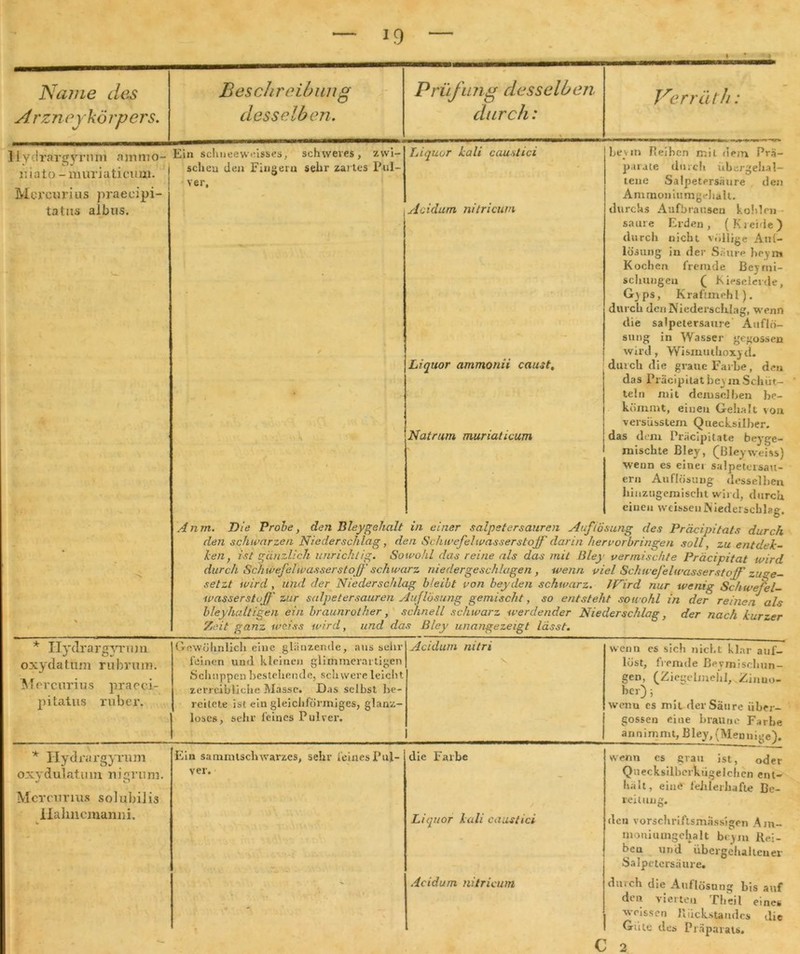 — 19 —
Name des
Arzneykörpers.
Beschreibung
desselben.
Prüfung desselben
durch:
Verräth:
Hydrargyrum ammo-
niato-muriaticum.
Mercurius praecipi-
tatus albus.
Ein schneeweisses, schweres, zwi-
schen den Fingern sehr zartes Pul-
ver.
Liquor kali caustici
Acidum nitricum
Liquor ammonii caust.
Natrum muriaticum
beym Reiben mit dem Prä-
parate durch übergehal-
tene Salpetersäure den
Ammoniumgehalt.
durchs Aufbrausen kohlen-
saure Erden, (Kreide)
durch nicht völlige Auf-
lösung in der Säure beym
Kochen fremde Beymi-
schungen (Kieselerde,
Gyps, Kraftmehl).
durch den Niederschlag, wenn
die salpetersaure Auflö-
sung in Wasser gegossen
wird, Wismuthoxyd.
durch die graue Farbe, den
das Präcipitat beym Schüt-
teln mit demselben be-
kömmt, einen Gehalt von
versüsstem Quecksilber.
das dem Präcipitate beyge-
mischte Bley, (Bleyweiss)
wenn es einer salpetersau-
ern Auflösung desselben
hinzugemischt wird, durch
einen weissen Niederschlag.
Anm. Die Probe, den Bleygehalt in einer salpetersauren Auflösung des Präcipitats durch
den schwarzen Niederschlag, den Schwefelwasserstoff darin hervorbringen soll, zu entdek-
ken, ist gänzlich unrichtig. Sowohl das reine als das mit Bley vermischte Präcipitat wird
durch Schwefelwasserstoff schwarz niedergeschlagen, wenn viel Schwefelwasserstoff zuge-
setzt wird, und der Niederschlag bleibt von beyden schwarz. Wird nur wenig Schwefel-
wasserstoff zur salpetersauren Auflösung gemischt, so entsteht sowohl in der reinen als
bleyhaltigen ein braunrother, schnell schwarz werdender Niederschlag, der nach kurzer
Zeit ganz weiss wird, und das Bley unangezeigt lässt.
* Hydrargyrum
oxydatum rubrum.
Mercurius praeci-
pitatus ruber.
Gewöhnlich eine glänzende, aus sehr
feinen und kleinen glimmerartigen
Schuppen bestehende, schwere leicht
zerreibliche Masse. Das selbst be-
reitete ist ein gleichförmiges, glanz-
loses, sehr feines Pulver.
Acidum nitri
wenn es sich nicht klar auf-
löst, fremde Beymischun-
gen, (Ziegelmehl, Zinno-
ber);
wenn es mit der Säure über-
gossen eine braune Farbe
annimmt, Bley, (Mennige).
* Hydrargyrum
oxydulatum nigrum.
Mercurius solubilis
Hahnemanni.
Ein sammtschwarzes, sehr feines Pul-
ver.
die Farbe
Liquor kali caustici
Acidum nitricum
wenn es grau ist, oder
Quecksilberkügelchen ent-
hält, eine fehlerhafte Be-
reitung.
den vorschriftsmässigen Am-
moniumgehalt beym Rei-
ben und übergehaltener
Salpetersäure.
durch die Auflösung bis auf
den vierten Theil eines
weissen Rückstandes die
Güte des Präparats.
C 2